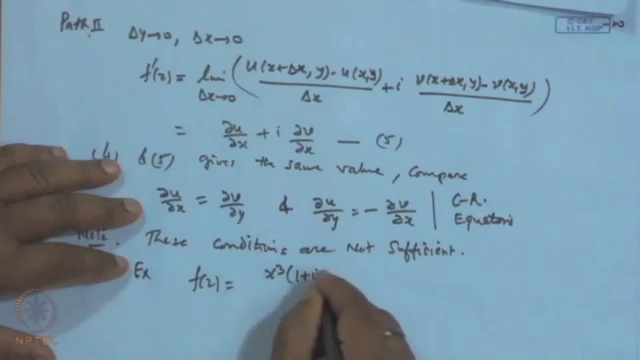 Path II Δy→0, Δx→0
f'(z) = lim Δx→0 ( u(x+Δx, y) - u(x,y) / Δx + i v(x+Δx, y) - v(x,y) / Δx )
= ∂u/∂x + i ∂v/∂x — (5)
(4) & (5) gives the same value, Compare
∂u/∂x = ∂v/∂y & ∂u/∂y = - ∂v/∂x | C-R. Equations
Note. These Conditions are Not Sufficient.
Ex f(z) = x³(1+i
© CET
I.I.T. KGP
NPTEL